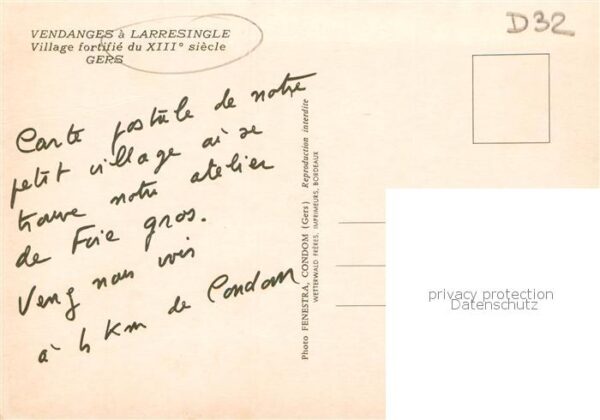 VENDANGES à LARRESINGLE
Village fortifié du XIII° siècle
GERS
D32
Carte postale de notre
petit village où se
trouve notre atelier
de Foie gros.
Veng nous voir
à 4 km de Condom
Photo FENESTRA, CONDOM (Gers) Reproduction interdite
WETTERWALD FRÈRES, IMPRIMEURS, BORDEAUX
privacy protection
Datenschutz